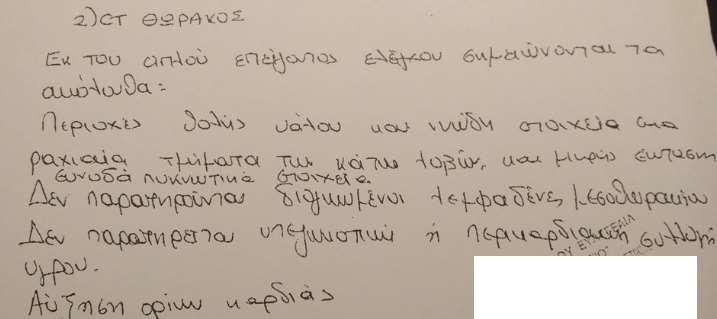 2) CT ΘΩΡΑΚΟΣ
Εκ του απλού επείγοντος ελέγχου σημειώνονται τα
ακόλουθα:
Περιοχές θολής υάλου και ινώδη στοιχεία στα
ραχιαία τμήματα των κάτω λοβών, και μικρής έκτασης
συνοδά πυκνωτικά στοιχεία.
Δεν παρατηρούνται διογκωμένοι λεμφαδένες μεσοθωρακίου
Δεν παρατηρείται υπεζωκοτική ή περικαρδιακή συλλογή
υγρού.
Αύξηση ορίων καρδιάς